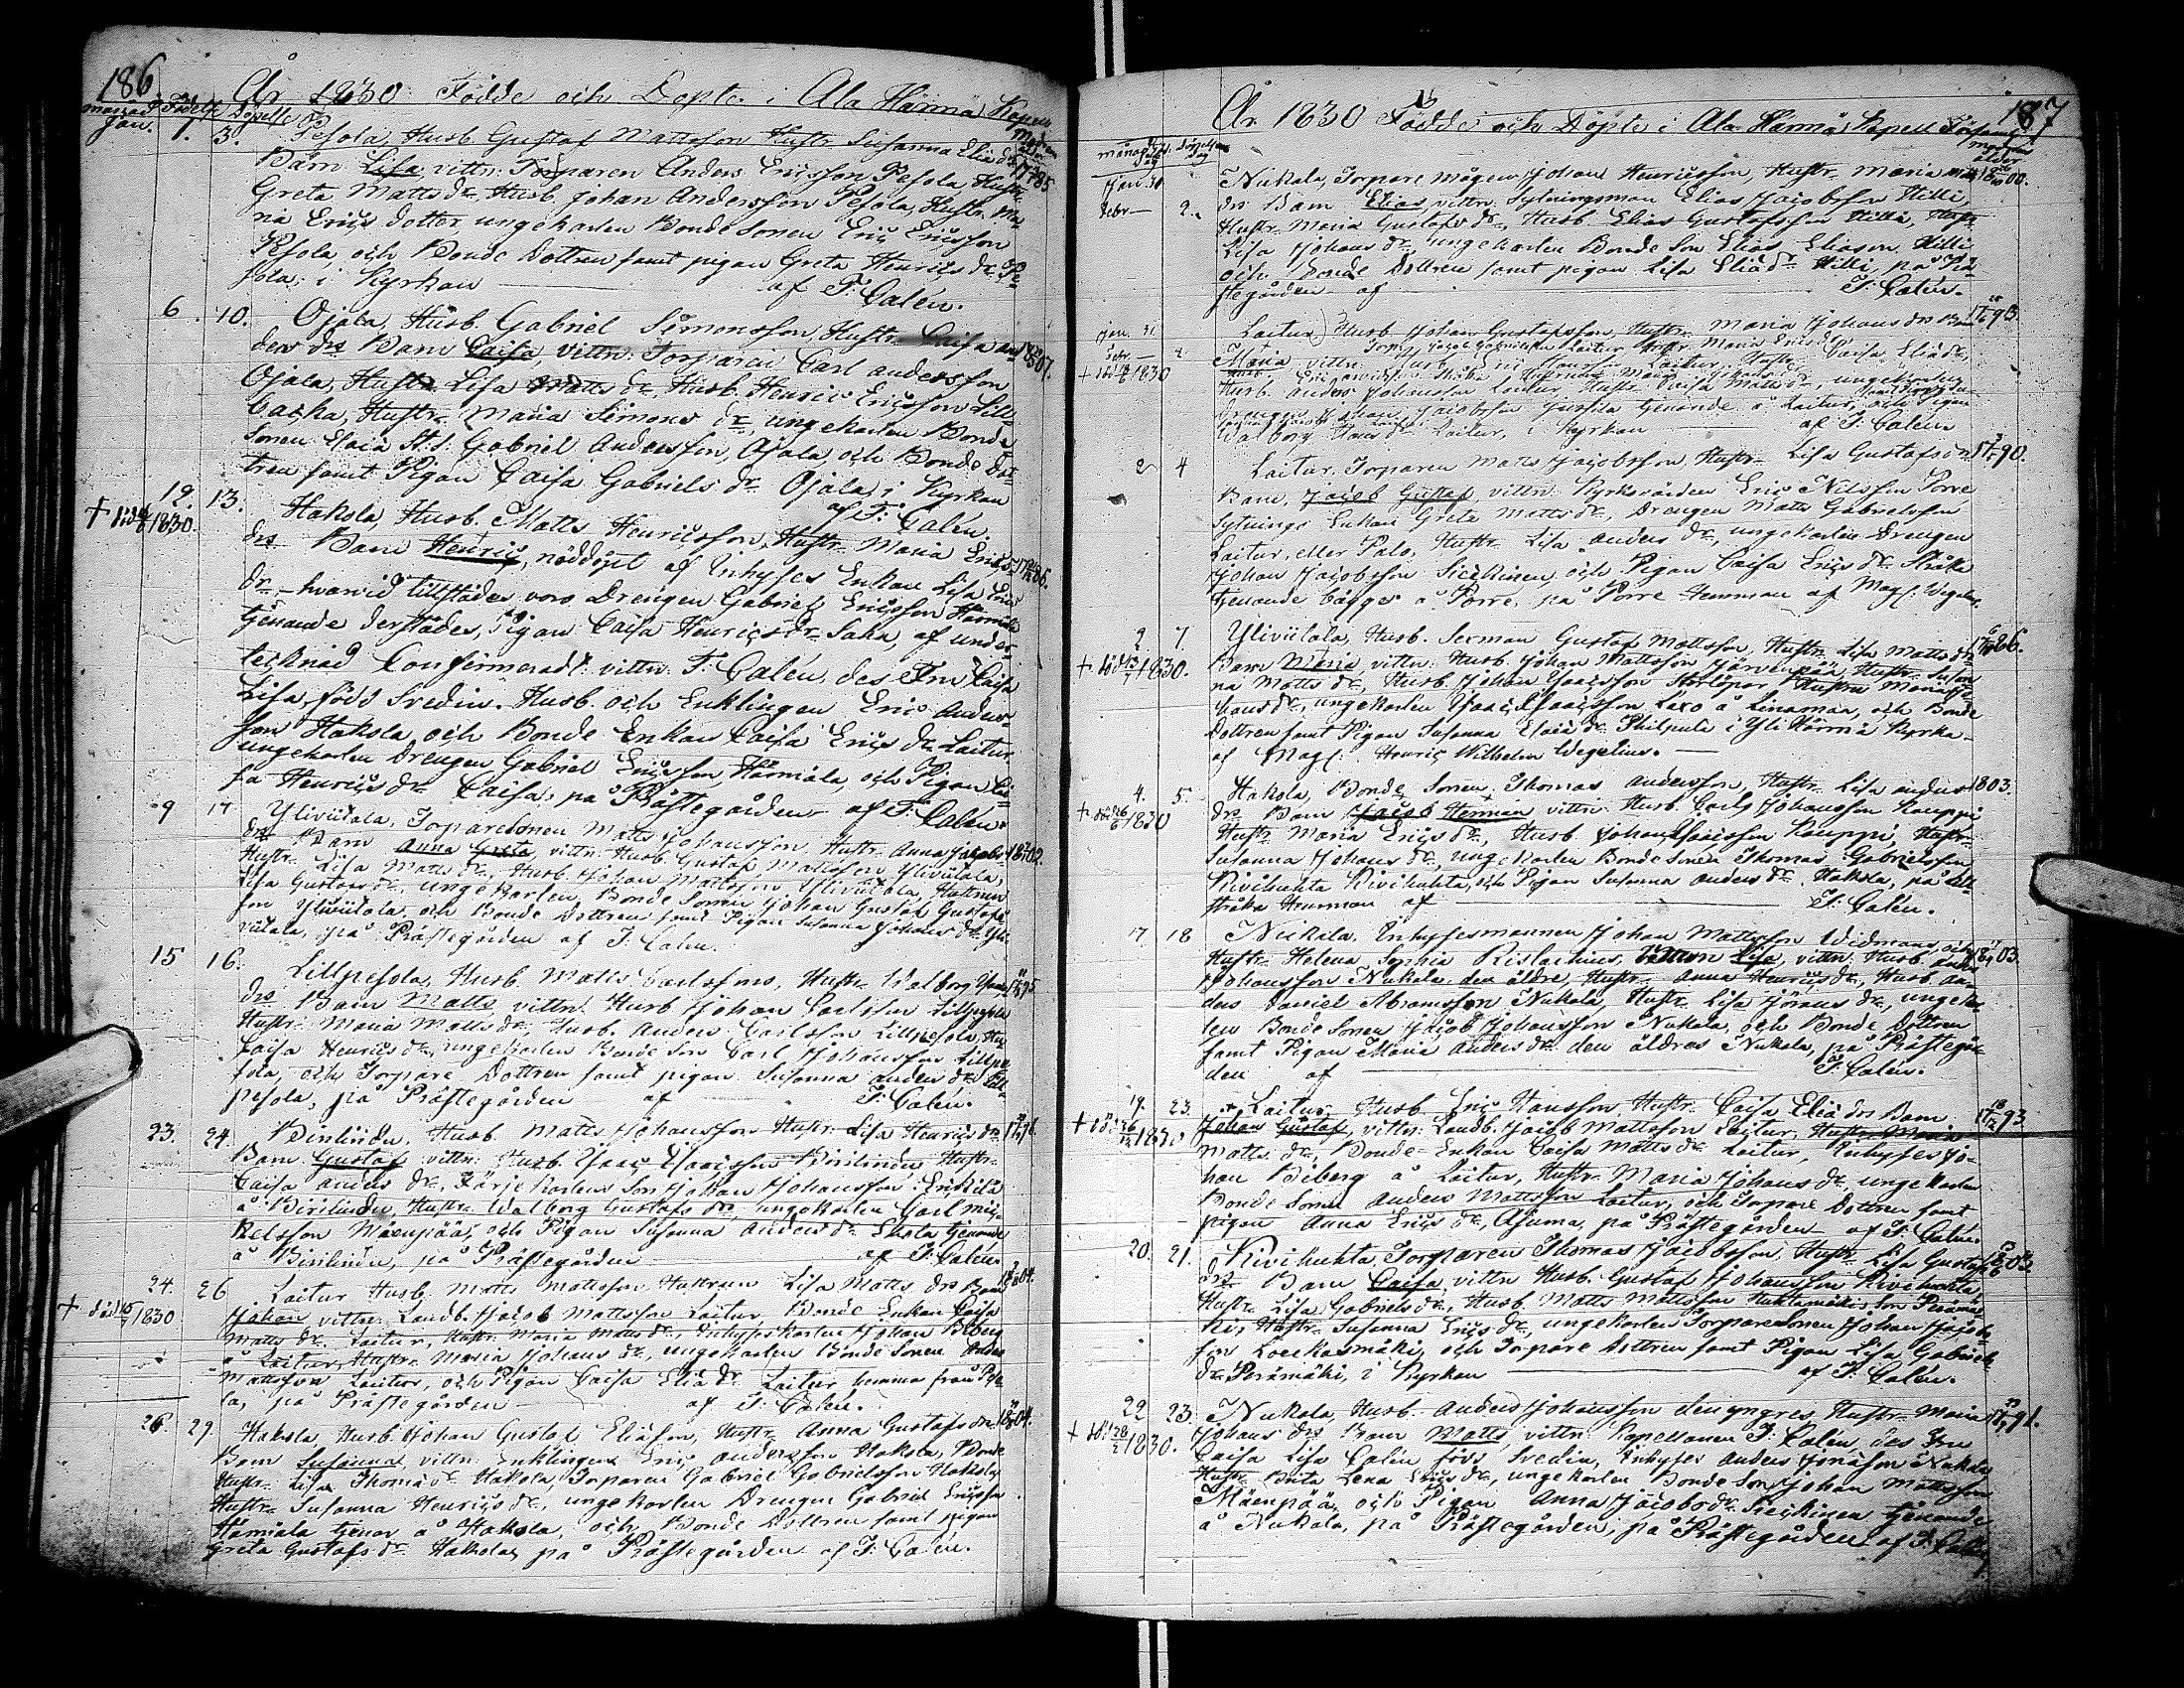 186.
År 1830 Födde och Döpte i Ala Härmä Kapell
månad Födelse Döpelse
Jan. 1. 3. Pesola, Husb. Gustaf Mattsson Hustr. Susanna Eliæ drs
Barn Lisa vittn: Torparen Anders Ericsson Pesola, Hustr.
Greta Matts dr, Husb. Johan Andersson Pesola, Hustr. Ma-
ria Erics dotter, ungekarlen Bonde Sonen Eric Ericsson
Pesola, och Bonde Dottren samt pigan Greta Henrics dr Pe-
sola; i Kyrkan af F: Calén.
6. 10. Ojala, Husb. Gabriel Simonsson, Hustr. Caisa An-
ders drs Barn Caisa, vittn: Torparen Carl Andersson
Ojala, Hustr. Lisa Matts dr, Husb. Henric Ericsson Lill
backa, Hustr. Maria Simons dr, ungekarlen Bonde
Sonen Gabriel Andersson, Ojala, och Bonde Dot-
tren samt Pigan Caisa Gabriels dr Ojala, i Kyrkan
af F: Calén.
12. 13. Hakola, Husb. Matts Henricsson, Hustr. Maria Erics
† död 1830.
drs Barn Henric, nöddöpt af Inhyses Enkan Lisa Erics
dr, hvarvid tillstädes voro Drengen Gabriel Ericsson Härmälä
tjenande derstädes, Pigan Caisa Henrics dr Saha, af under-
tecknad Confirmeradt: vittn: F: Calén, des Fru Caisa
Lisa, född Svedin. Husb. och Enklingen Eric Anders-
son Hakola, och Bonde Enkan Caisa Erics dr Laitur
ungekarlen Drengen Gabriel Ericsson, Härmälä, och Pigan
Henrics dr Caisa, på Prästegården af F: Calén.
9 17 Yliviitala, Torparesonen Matts Johansson, Hustr. Anna Jacobs 1802.
drs Barn Anna Greta, vittn: Husb. Gustaf Mattsson Yliviitala,
Hustr. Lisa Matts dr, Husb. Johan Mattsson Yliviitala, Hustrun
Lisa Gustafs dr, ungekarlen Bonde Sonen Johan Gustaf Gustafs
son Yliviitala, och Bonde Dottren samt Pigan Susanna Johans dr Yli-
viitala, på Prästegården af F: Calén.
15 16. Lillpesola, Husb. Matts Carlssons, Hustr. Walborg
drs Barn Matts, vittn: Husb. Johan Carlsson Lillpesola
Hustr. Maria Matts dr, Husb. Anders Carlsson Lillpesola, Hu
Caisa Henrics dr, ungekarlen Bonde Son Carl Johansson Lillpe-
sola, och Torpare Dottren samt pigan Susanna Anders dr Lill-
pesola, på Prästegården af F: Calén.
23. 24. Birilindu, Husb. Matts Johansson Hustr. Lisa Henrics drs
Barn Gustaf vittn: Husb. Isaac Isaacsson Birilindu Hustr.
Caisa Anders dr, Färjekarlens Son Johan Johansson Enkilä
å Birilindu, Hustr. Walborg Gustafs dr, ungekarlen Carl Mic-
kelsson Mäenpää, och Pigan Susanna Anders dr Ekola tjenande
å Birilindu, på Prästegården af F: Calén.
24. 26 Laitur Husb. Matts Mattsson, Hustrun Lisa Matts drs Barn
† död 1830
Johan, vittn: Landb. Jacob Mattsson Laitur, Bonde Enkan Caisa
Matts dr Laitur, Hustr. Maria Matts dr, Inhyses karlen Johan Biberg
å Laitur, Hustr. Maria Johans dr, ungekarlen Bonde Sonen Anders
Mattsson Laitur, och Pigan Caisa Eliæ dr Laitur hemma från Peso
la, på Prästegården af F: Calén.
26. 29. Hakola, Husb. Johan Gustaf Eliæson, Hustr. Anna Gustafs drs 1804.
Barn Susanna, vittn: Enklingen Eric Andersson Hakola, Bonde
Hustr. Lisa Thomæ dr Hakola, Torparen Gabriel Gabrielsson Hakola
Hustr. Susanna Henrics dr, ungekarlen Drengen Gabriel Ericsson
Härmälä tjenar å Hakola, och Bonde Dottren samt pigan
Greta Gustafs dr Hakola, på Prästegården af F: Calén.
187
År 1830 Födde och Döpte i Ala Härmä Kapell
månad Döpelse dag
Jan. 31 Nukala, Torpare mågen Johan Henricsson, Hustr. Maria 1800.
Febr— 2. drs Barn Elias, vittn: Sytningsman Elias Jacobsson Hilli,
Hustr. Maria Gustafs dr, Husb. Elias Gustafsson Hilli, Hustr.
Lisa Johans dr, ungekarlen Bonde Son Elias Eliæson Hilli
och Bonde Dottren samt pigan Lisa Eliæ dr Hilli, på Prä-
stegården af F: Calén.
Jan. 31 Laitur, Husb. Johan Gustafsson, Hustr. Maria Johans drs Barn 1793.
Febr.— 2 Maria vittn: Husb. Laitur, Hustr. Caisa Eliæ dr,
† död 1830 Husb. Anders Johansson Laitur, Hustr. Caisa Matts dr, ungekarlen
Drengen Johan Jacobsson tjenande å Laitur, och Pigan
Walborg Hans dr Laitur, i Kyrkan af F: Calén
2 4 Laitur, Torparen Matts Jacobsson, Hustr. Lisa Gustafs drs 1790.
Barn, Jacob Gustaf, vittn: Kyrkovärden Eric Nilsson Porre
Sytnings Enkan Greta Matts dr, Drengen Matts Gabrielsson
Laitur, eller Palo, Hustr. Lisa Anders dr, ungekarlen Drengen
Johan Jacobsson Sieckinen, och Pigan Caisa Erics dr Stråka
tjenande bägge å Porre, på Porre Hemman af Mag: Wegelius.
2 7. Yliviitala, Husb. Sexman Gustaf Mattsson, Hustr. Lisa Matts drs 1786.
† död 1830. Barn Maria vittn: Husb. Johan Mattsson Järvenpää, Hustr. Susan-
na Matts dr, Husb. Johan Isacsson Storlöpar Hustru Maria Jo-
hans dr, ungekarlen Isaac Isaacsson Laxo å Linaman, och Bonde
Dottren samt Pigan Susanna Esaiæ dr Philpula i Yli Härmä Kyrka
af Mag: Henric Wilhelm Wegelius.
4. 5. Hakola, Bonde Sonen Thomas Andersson, Hustr. Lisa Anders 1803.
† död 1830 drs Barn Jacob Herman vittn: Husb. Carl Johansson Kauppi
Hustr. Maria Erics dr, Husb. Johan Isacsson Kauppi, Hustr.
Susanna Johans dr, ungekarlen Bonde Sonen Thomas Gabrielsson
Kivihuhta, och Pigan Susanna Anders dr Hakola, på Lill
stråka Hemman af F: Calén.
17 18 Nukala, Inhysesmannen Johan Mattsson Widmans, och
Hustr. Helena Sophia Rislachius, Barn Lisa, vittn: Husb. Anders 1803.
Johansson Nukala den äldre, Hustr. Anna Henrics dr, Husb. An-
ders Daniel Abramsson Nukala, Hustr. Lisa Jörans dr, ungekar-
len Bonde Sonen Jacob Johansson Nukala, och Bonde Dottren
samt Pigan Maria Anders dr den äldres Nukala, på Prästegår-
den af F: Calén.
19. 23. Laitur, Husb. Eric Hansson, Hustr. Caisa Eliæ drs Barn 1793
† död 1830 Johan Gustaf, vittn: Landb. Jacob Mattsson Laitur, Hustr. Maria
Matts dr, Bonde Enkan Caisa Matts dr Laitur, Inhyses Jo-
han Biberg å Laitur, Hustr. Maria Johans dr, ungekarlen
Bonde Sonen Anders Mattsson Laitur, och Torpare Dottren samt
pigan Anna Erics dr, Asuma, på Prästegården af F: Calén.
20. 21. Kivihuhta, Torparen Thomas Jacobsson, Hustr. Lisa Gustafs 1803.
drs Barn Caisa, vittn Husb. Gustaf Johansson Kivihuhta,
Hustr. Lisa Gabriels dr, Husb. Matts Mattsson Huhtamäki, Perämä-
ki, Hustr. Susanna Erics dr, ungekarlen Torparesonen Johan Jacobs-
son Loukasmäki, och Torpare Dottren samt Pigan Lisa Gabriels
dr Perämäki, i Kyrkan af F: Calén.
22 23. Nukala, Husb. Anders Johansson den yngres, Hustr. Maria 1791.
† död 1830. Johans drs Barn Matts, vittn: Kapellanen F: Calén, des Fru
Caisa Lisa Calén född Svedin, Inhyses Anders Jonasson Nukala
Hustr. Brita Lena Erics dr, ungekarlen Bonde Son Johan Mattsson
Mäenpää, och Pigan Anna Jacobs dr Sieckinen tjenande
å Nukala, på Prästegården, på Prästegården af F: Calén